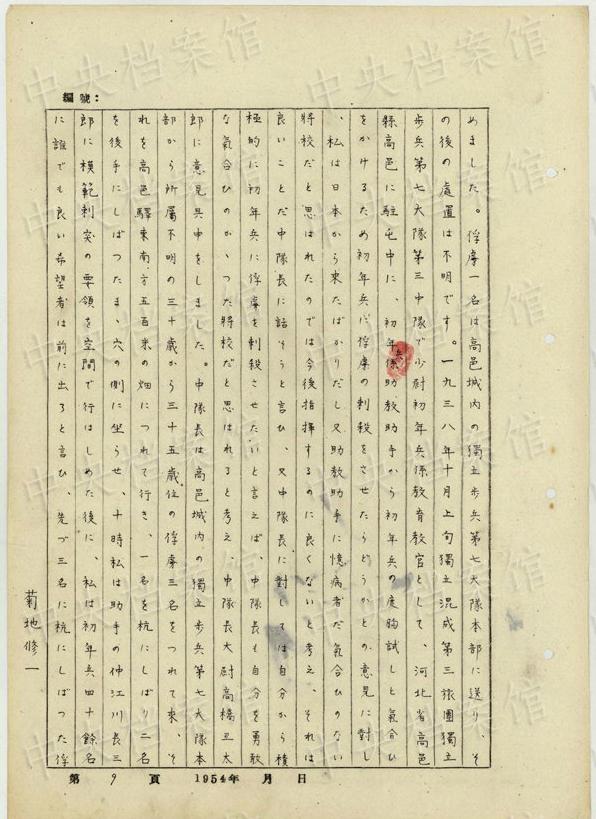 編號:
めました。俘虜一名は高邑城内の獨立歩兵第七大隊本部に送り、そ
の後の處置は不明です。一九三八年十月上旬獨立混成第三旅團獨立
歩兵第七大隊第三中隊で少尉初年兵係教育教官として、河北省高邑
縣高邑に駐屯中に、初年兵係助教助手から初年兵の度胸試しと氣合ひ
をかけるため初年兵に俘虜の刺殺をさせたらどうかとの意見に對し
、私は日本から来たばかりだし又助教助手に憶病者だ氣合ひのない
將校だと思はれたのでは今後指揮するのに良くないと考え、それは
良いことだ中隊長に話そうと言ひ、又中隊長に對しては自分から積
極的に初年兵に俘虜を刺殺させたいと言えば、中隊長も自分を勇敢
な氣合ひのかゝつた將校だと思はれると考え、中隊長大尉高橋丑太
郎に意見具申をしました。中隊長は高邑城内の獨立歩兵第七大隊本
部から所屬不明の三十歳から三十五歳位の俘虜三名をつれて来、そ
れを高邑驛東南方五百米の畑につれて行き、一名を杭にしばり二名
を後手にしばつたまゝ穴の側に坐らせ、十時私は助手の仲江川長三
郎に模範刺突の要領を空間で行はしめた後に、私は初年兵四十餘名
に誰でも良い希望者は前に出ろと言ひ、先づ三名に杭にしばつた俘
菊地修一
第 9 頁 1954年 月 日
中央档案馆